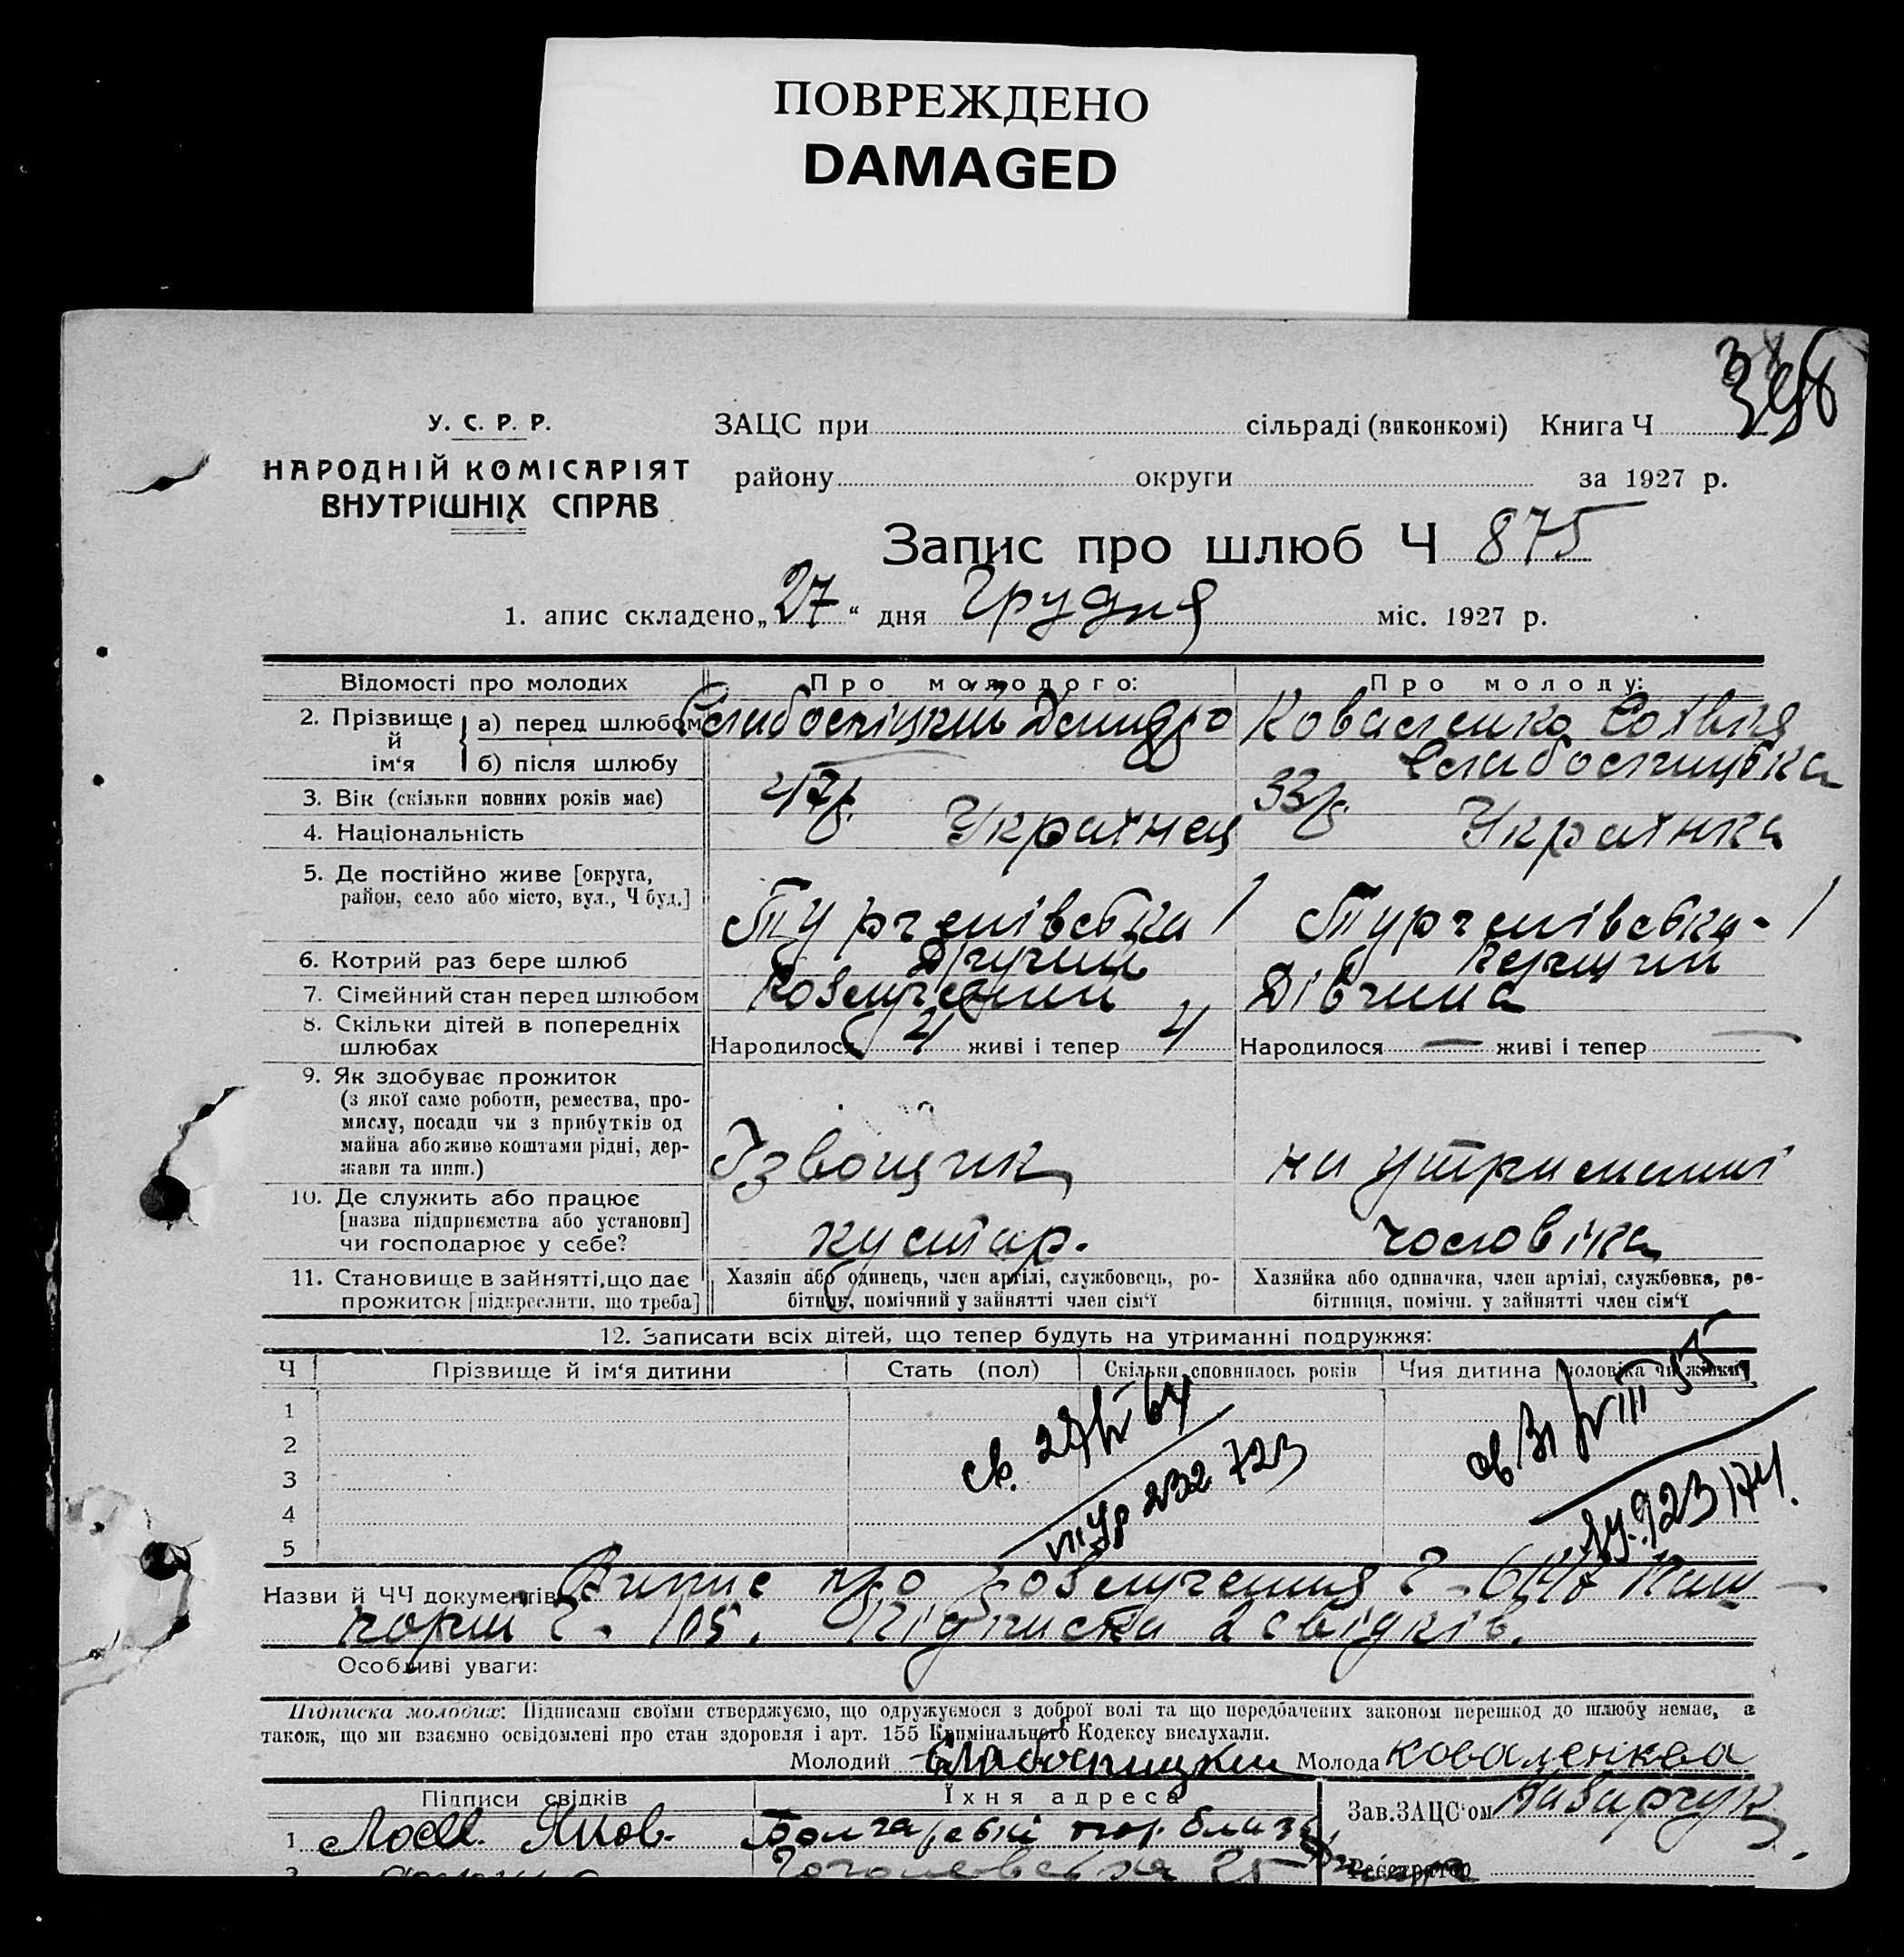 ПОВРЕЖДЕНО
DAMAGED
У. С. Р. Р.
НАРОДНІЙ КОМІСАРІЯТ
ВНУТРІШНІХ СПРАВ
ЗАЦС при сільраді (виконкомі) Книга Ч
району округи за 1927 р.
Запис про шлюб Ч 875
1. апис складено „27“ дня Грудня міс. 1927 р.
Відомості про молодих Про молодого: Про молоду:
2. Прізвище й ім‘я а) перед шлюбом Слабоспіцкий Коваленко
б) після шлюбу Слабоспицька
3. Вік (скільки повних років має) 47р. 33р.
4. Національність Українец Українка
5. Де постійно живе [округа, район, село або місто, вул., Ч буд.] Тургенівська 1 Тургенівська - 1
6. Котрий раз бере шлюб Другий Перщий
7. Сімейний стан перед шлюбом Розлучений Дівчина
8. Скільки дітей в попередніх шлюбах Народилося 4 живі і тепер 4 Народилося — живі і тепер —
9. Як здобуває прожиток
(з якої само роботи, ремества, про-
мислу, посади чи з прибутків од
майна або живе коштами рідні, дер-
жави та инш.) Ізвощик на утриманні
10. Де служить або працює
[назва підприємства або установи]
чи господарює у себе? кустар. чоловіка
11. Становище в зайнятті, що дає
прожиток [підкреслити, що треба]
Хазяін або одинець, член артілі, службовець, ро-
бітник, помічний у зайнятті член сім‘ї
Хазяйка або одиначка, член артілі, службовка, ро-
бітниця, помічн. у зайнятті член сім‘ї
12. Записати всіх дітей, що тепер будуть на утриманні подружжя:
Ч Прізвище й ім‘я дитини Стать (пол) Скільки сповнилось років Чия дитина [чоловіка чи жінки]
1
2
3
4
5
232 723
923174.
Назви й ЧЧ документів Випис про розлучення Ч - Паш-
порт Ч - 105. Підписка 2 свідків.
Особливі уваги:
Підписка молодих: Підписами своїми стверджуємо, що одружуємося з доброї волі та що передбачених законом перешкод до шлюбу немає, а
також, що ми взаємно освідомлені про стан здоровля і арт. 155 Кримінального Кодексу вислухали.
Молодий Слабоспицкий Молода Коваленкова
Підписи свідків Їхня адреса Зав. ЗАЦС‘ом
1. Яков.
2 Гоголевська 25 Реєстратор